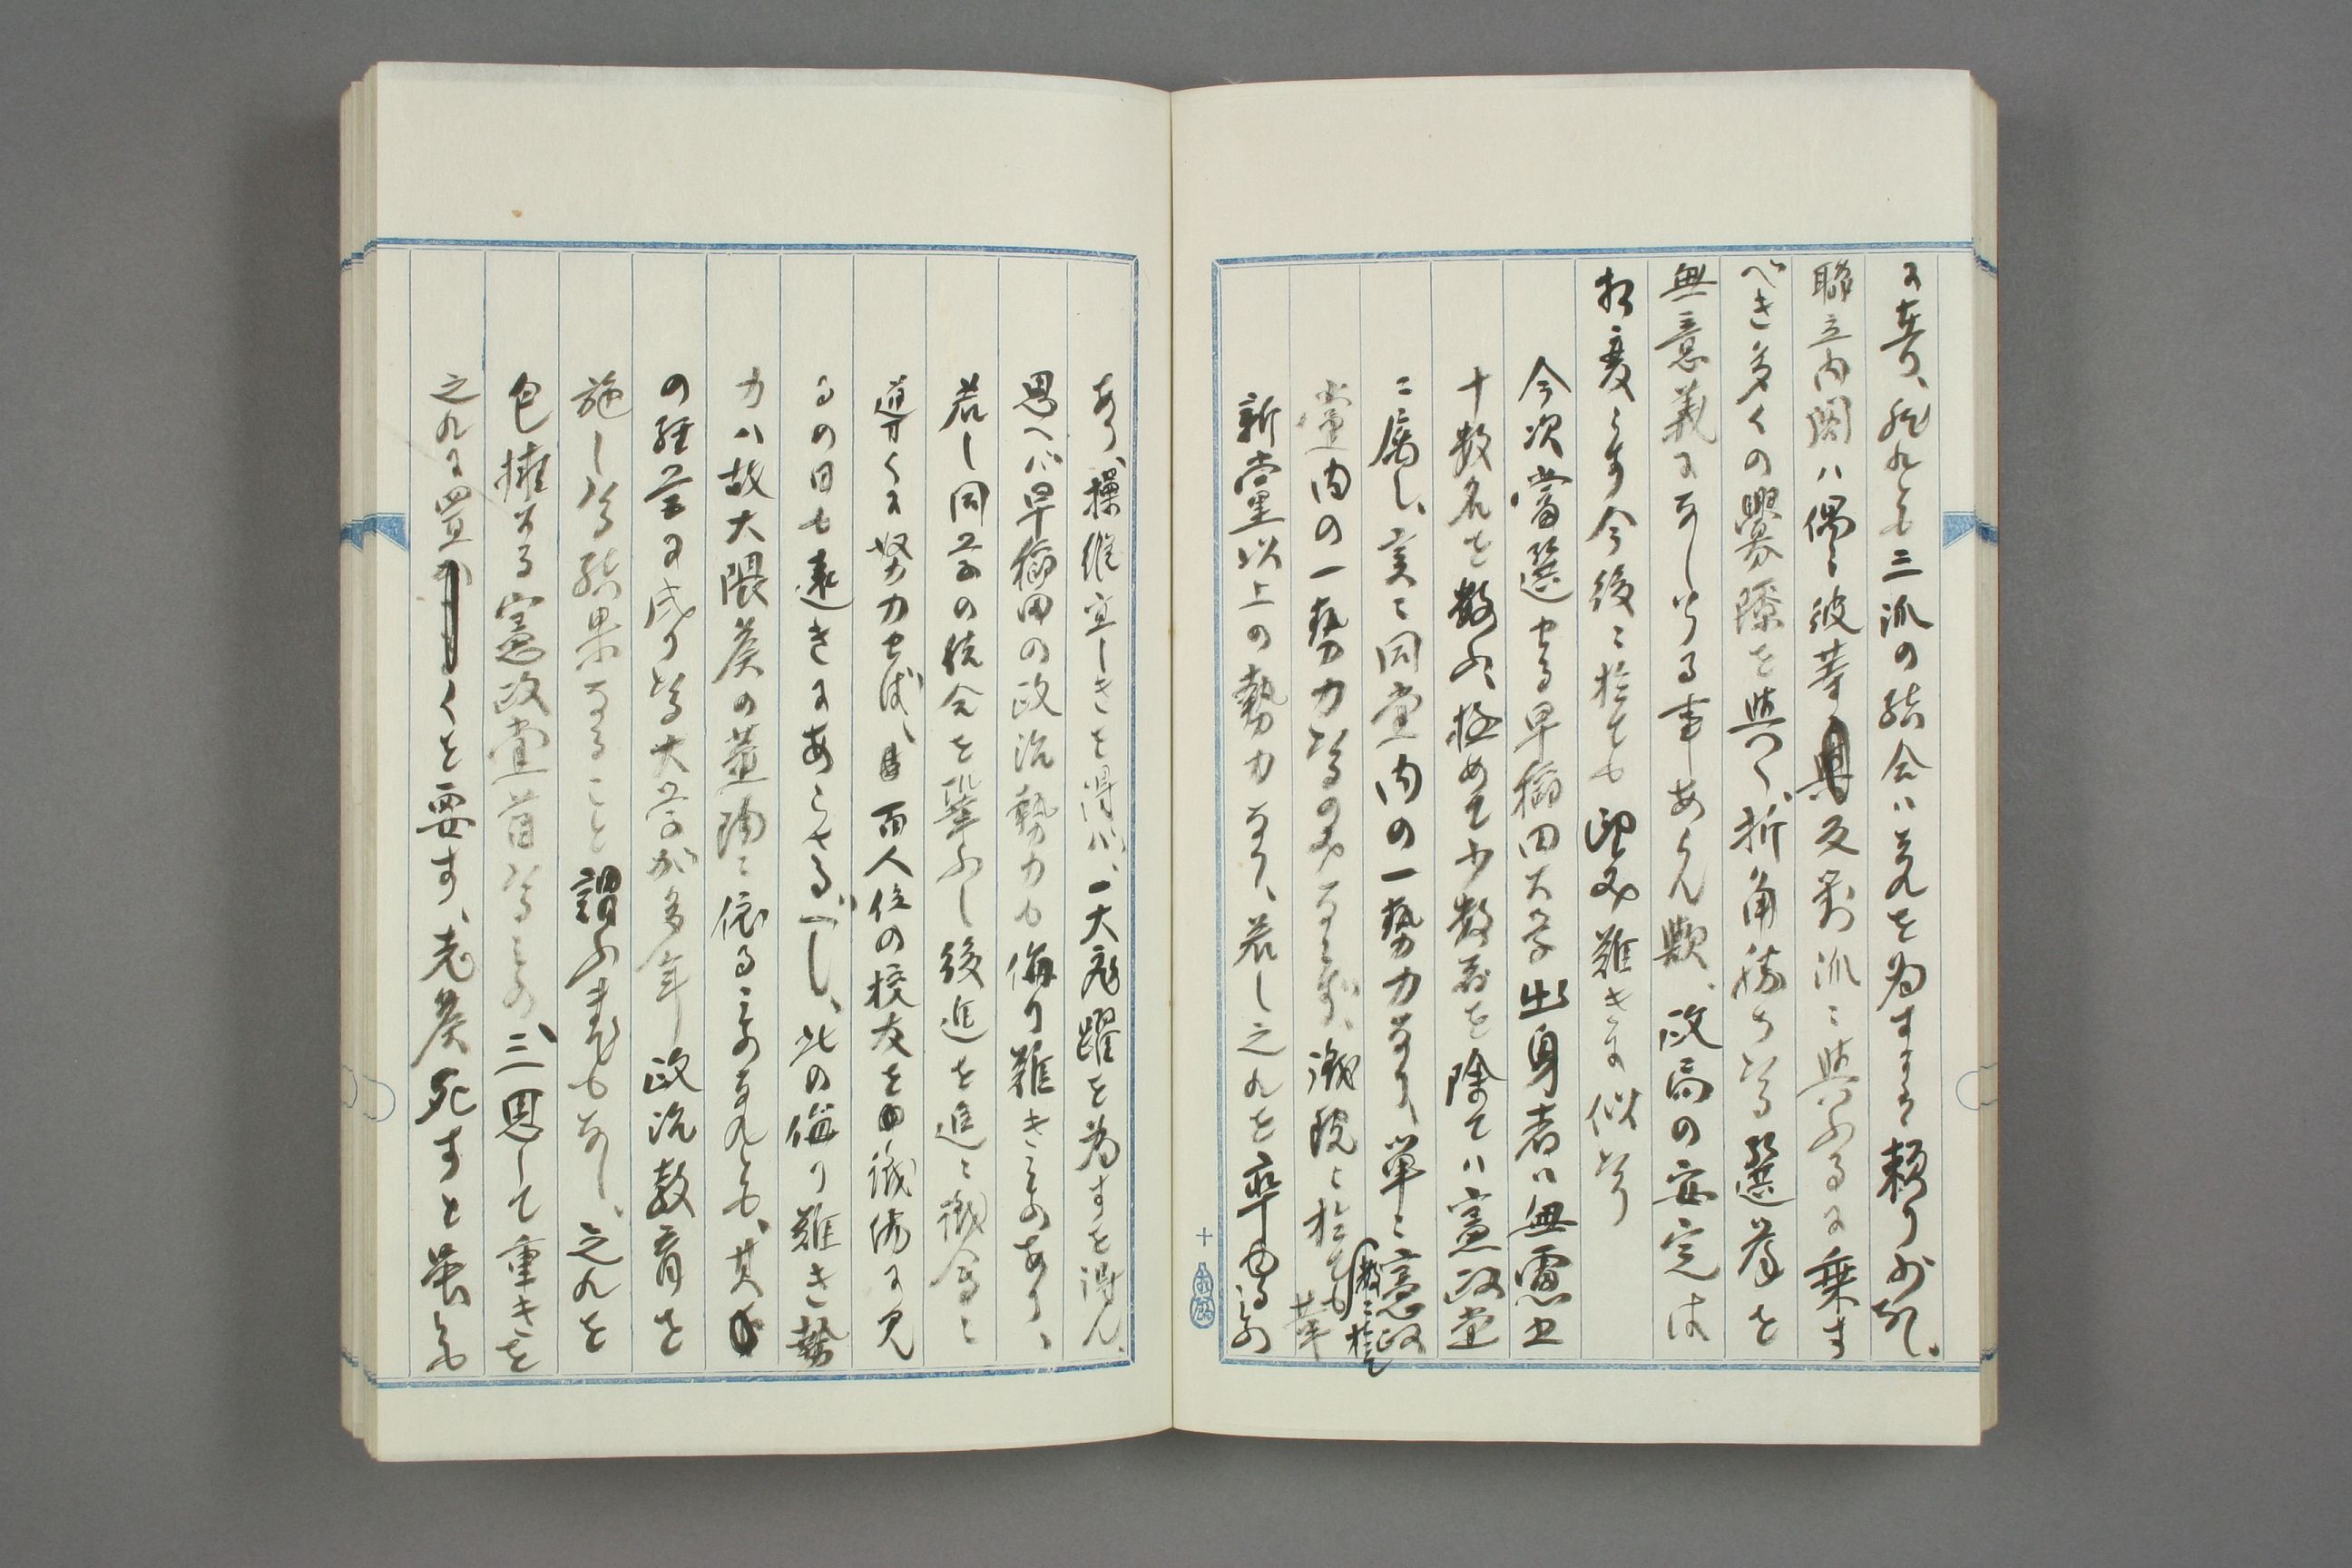 に在り、然れとも三派の結合ハ之れを為すまる頼り少し、
聯立内閣ハ偶々彼等反対派ニ與ふるに乗す
べき多くの釁隙を與へ、折角勝ちたる選挙を
無意義に了しむる事あらん歟、政局の安定は
相変らす今後ニ於ても望み難きに似たり
今次當選せる早稲田大学出身者ハ無慮五
十数名を数ふ、極めて少数者を除てハ憲政党
ニ属し、実ニ同党内の一勢力なり、単ニ憲政
党内の一勢力たるのみならず、議院ニ於ても数ニ於て革
新党以上の勢力なり、若し之れを率ゆる者
あり、操縦宜しきを得ハ、一大飛躍を為すを得ん、
思へハ早稲田の政治勢力も侮り難きものあり、
若し同学の統合を鞏ふし後進を進ニ議会ニ
導くに努力せば、百人位の校友を議場に見
るの日も遠きにあらさるべし、此の侮り難き勢
力ハ故大隈侯の薫陶ニ依るものなれとも、其
の経営に成りたる大学が多年政治教育を
施したる結果なること謂ふまでもなし、之れを
包擁する憲政党首たるもの、三思して重きを
之れに置くを要す、老侯死すと雖も
十